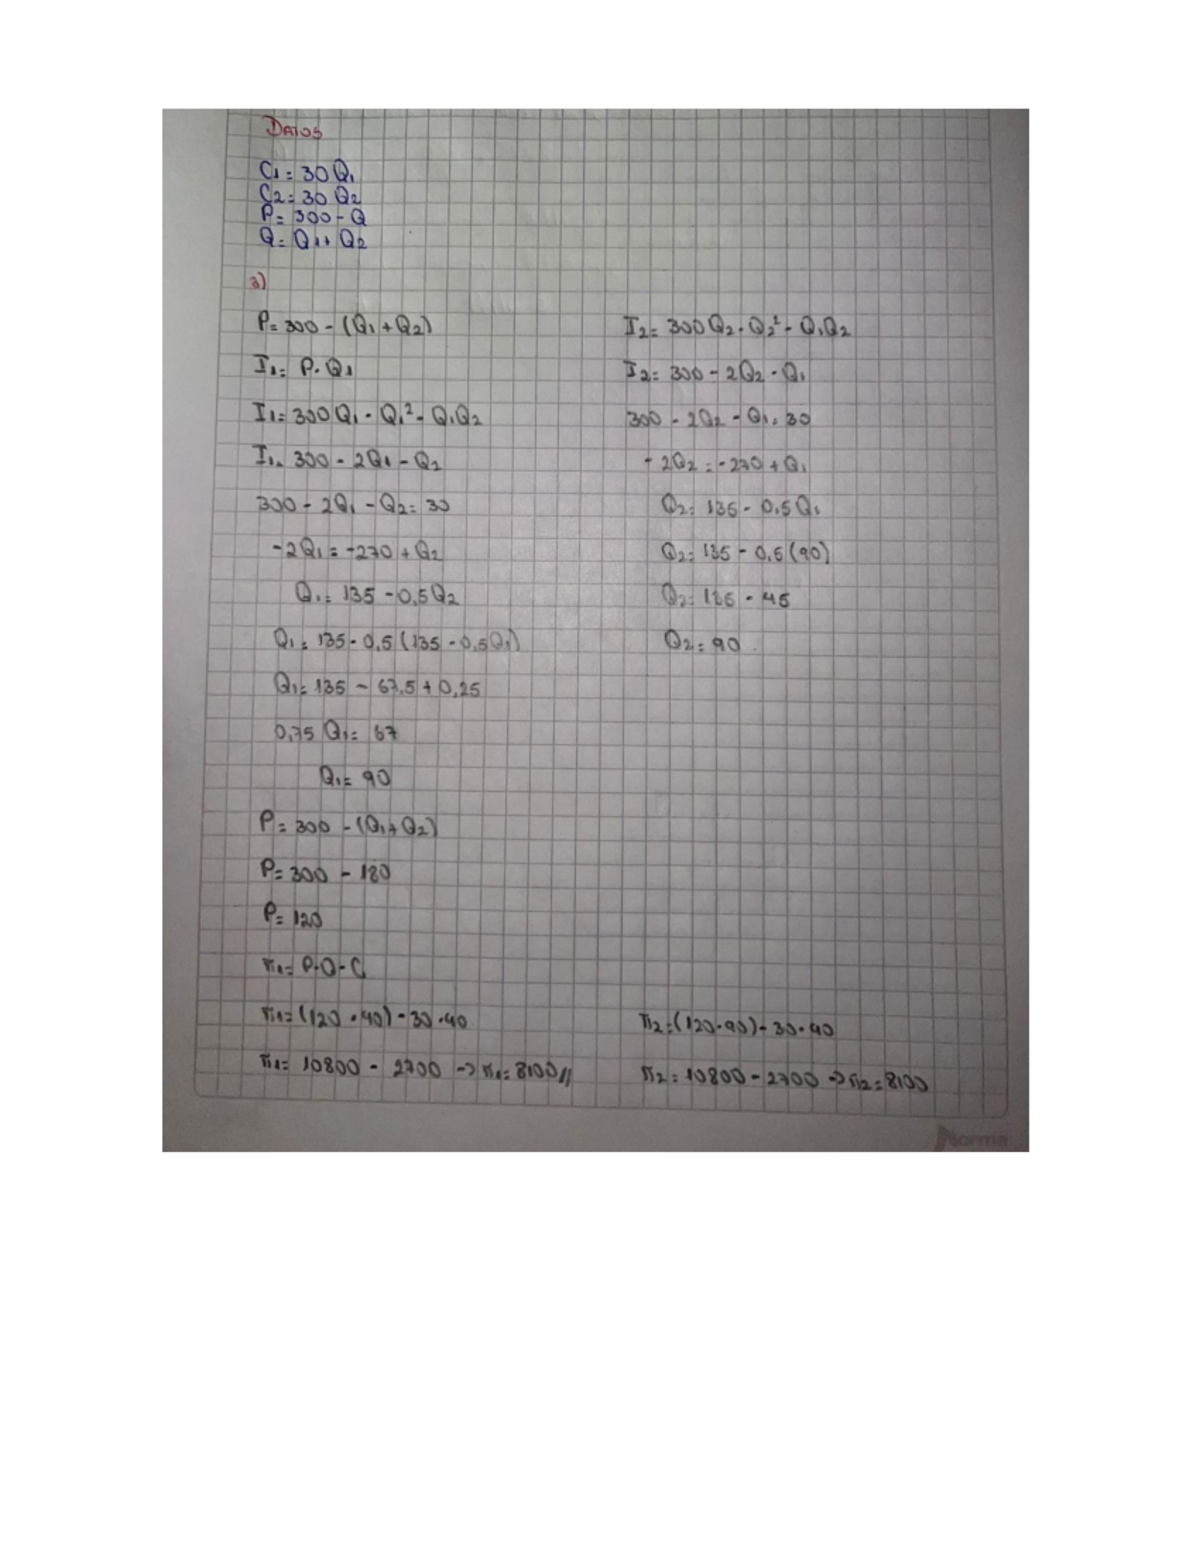 DATOS
C1 = 30 Q1
C2 = 30 Q2
P = 300 - Q
Q = Q1 + Q2
a)
P = 300 - (Q1 + Q2)
I1 = P. Q1
I1 = 300Q1 - Q1² - Q1Q2
I1 = 300 - 2Q1 - Q2
300 - 2Q1 - Q2 = 30
-2Q1 = -270 + Q2
Q1 = 135 - 0,5Q2
Q1 = 135 - 0,5 (135 - 0,5Q1)
Q1 = 135 - 67,5 + 0,25
0,75 Q1 = 67
Q1 = 90
P = 300 - (Q1 + Q2)
P = 300 - 180
P = 120
π1 = P.Q - C
π1 = (120 * 40) - 30 * 40
π1 = 10800 - 2700 -> π1 = 8100 //
I2 = 300 Q2 - Q2² - Q1Q2
I2 = 300 - 2Q2 - Q1
300 - 2Q2 - Q1 = 30
- 2Q2 = -270 + Q1
Q2 = 135 - 0,5 Q1
Q2 = 135 - 0,5 (90)
Q2 = 135 - 45
Q2 = 90
π2 = (120.90) - 30.40
π2 = 10800 - 2700 -> π2 = 8100
Norma